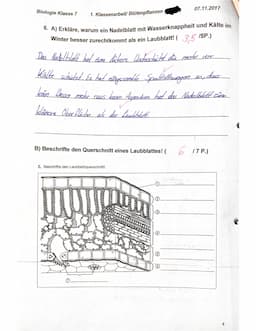 Biologie Klasse 7 1. Klassenarbeit Blütenpflanzen 07.11.2017
6. A) Erkläre, warum ein Nadelblatt mit Wasserknappheit und Kälte im
Winter besser zurechtkommt als ein Laubblatt! ( 3,5 /5P.)
Das Nadelblatt hat eine dickere die mehr vor
Kälte schützt. Es hat eingesenkte Spaltöffnungen so dass
kein Wasser mehr raus kann. Ausserdem hat das Nadelblatt eine
kleinere Oberfläche als der Laubblatt.
B) Beschrifte den Querschnitt eines Laubblattes! ( 6 / 7 P.)
2. Beschrifte den Laubblattquerschnitt